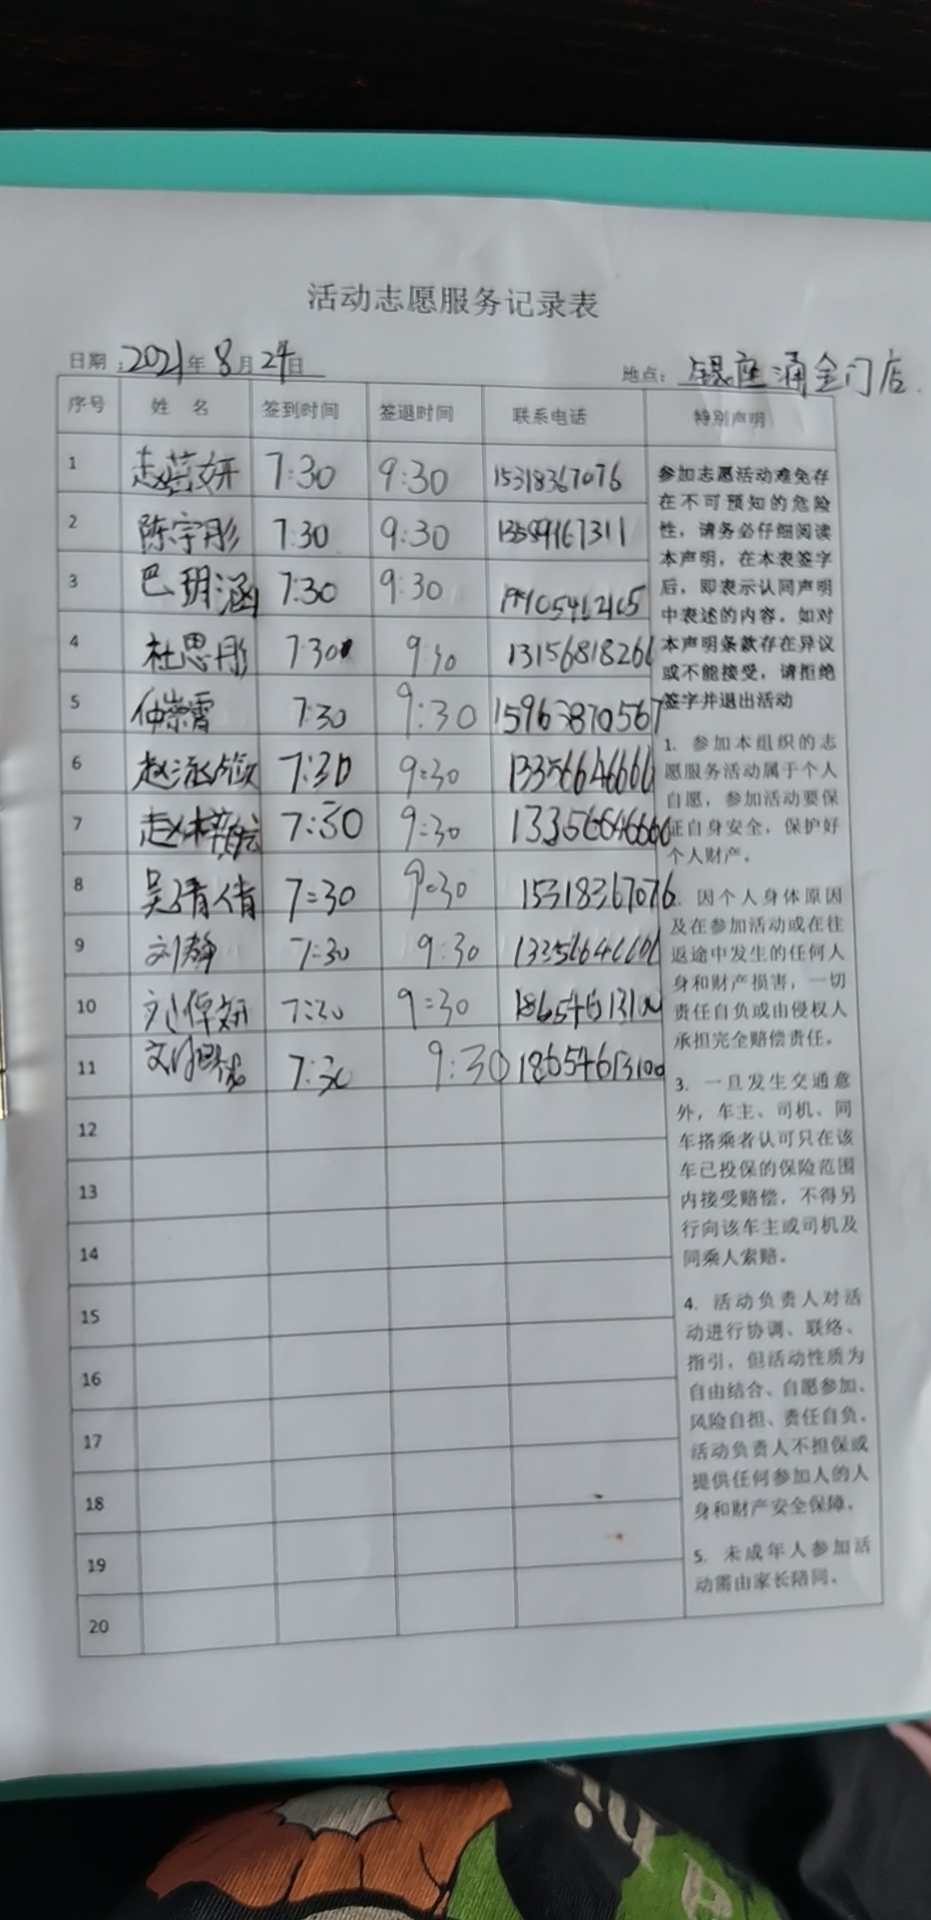 活动志愿服务记录表
日期:2021年8月24日 地点: 银座涌金门店
序号 姓 名 签到时间 签退时间 联系电话 特别声明
1 赵芸妍 7:30 9:30 15318367076
2 陈宇彤 7:30 9:30
3 巴玥涵 7:30 9:30
4 杜思彤 7:30 9:30 13156818266
5 仲崇霄 7:30 9:30 15963870567
6 7:30 9:30 13356646666
7 7:30 9:30 13356646666
8 吴倩倩 7:30 9:30 15318367076
9 刘静 7:30 9:30 13356646606
10 7:30 9:30 18654613100
11 7:30 9:30 18654613100
12
13
14
15
16
17
18
19
20
参加志愿活动难免存
在不可预知的危险
性,请务必仔细阅读
本声明,在本表签字
后,即表示认同声明
中表述的内容。如对
本声明条款存在异议
或不能接受,请拒绝
签字并退出活动
1. 参加本组织的志
愿服务活动属于个人
自愿,参加活动要保
证自身安全,保护好
个人财产。
因个人身体原因
及在参加活动或在往
返途中发生的任何人
身和财产损害,一切
责任自负或由侵权人
承担完全赔偿责任。
3. 一旦发生交通意
外,车主、司机、同
车搭乘者认可只在该
车已投保的保险范围
内接受赔偿,不得另
行向该车主或司机及
同乘人索赔。
4. 活动负责人对活
动进行协调、联络、
指引,但活动性质为
自由结合、自愿参加、
风险自担、责任自负。
活动负责人不担保或
提供任何参加人的人
身和财产安全保障。
5. 未成年人参加活
动需由家长陪同。